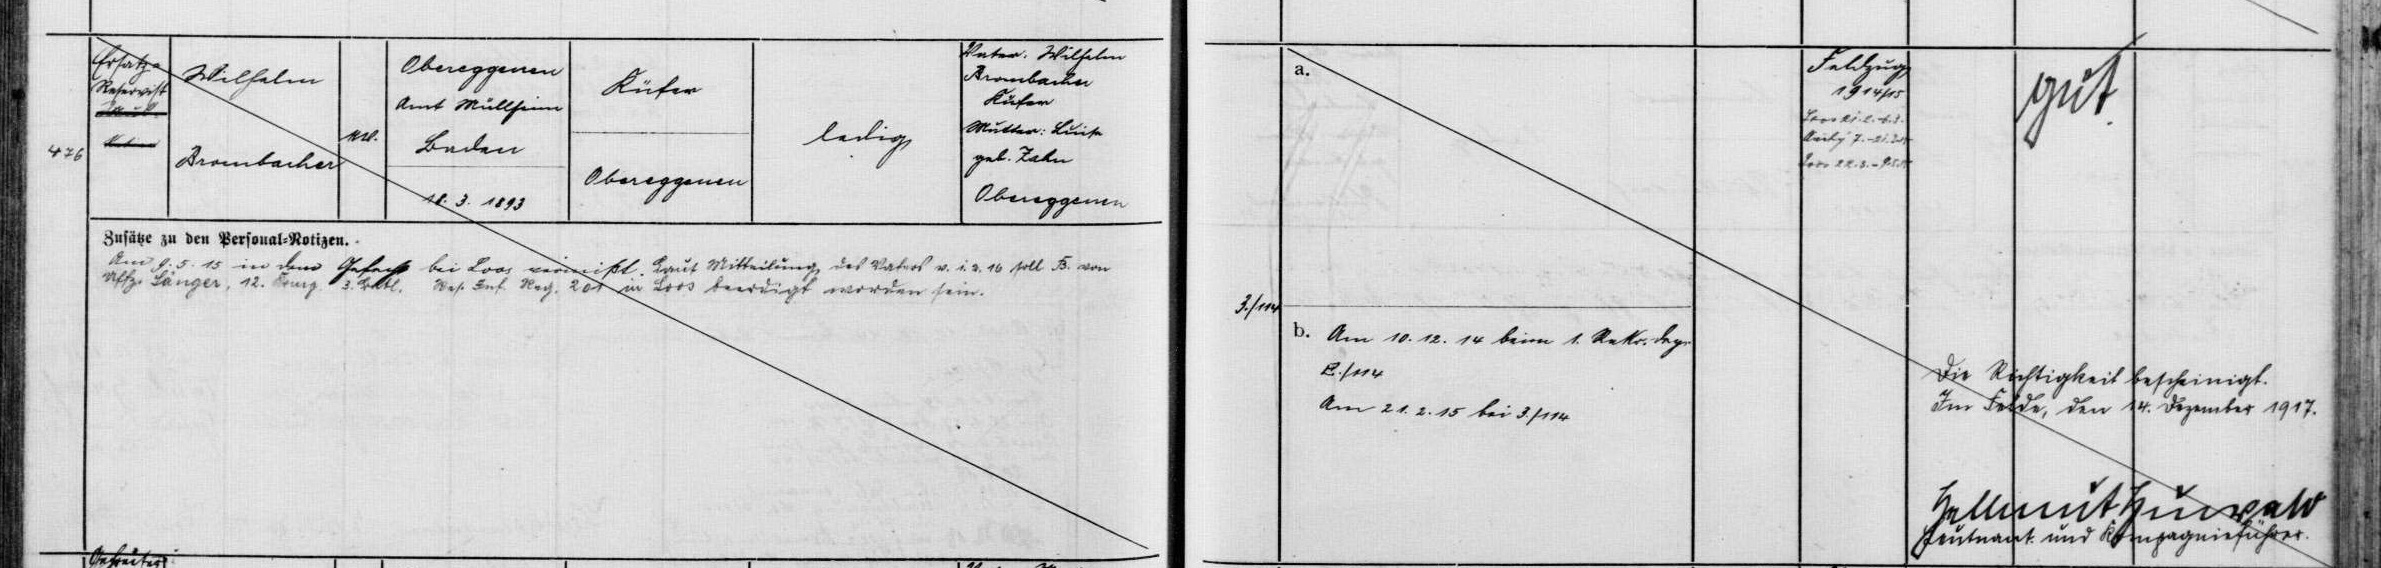 476
Ersatz-
Reservist
Wilhelm
Brombacher
Obereggenen
Amt Müllheim
Baden
18. 3. 1893
Küfer
Obereggenen
ledig
Vater: Wilhelm
Brombacher
Küfer
Mutter: Luise
geb. Zahn
Obereggenen
Zusätze zu den Personal-Notizen.
Am 9. 5. 15 in dem Gefecht bei Loos vermißt. Laut Mitteilung des Vaters v. 1. 2. 16 soll B. von
Uffz. Länger, 12. Komp. 3. Batl. Res. Inf. Reg. 201 in Loos beerdigt worden sein.
3./114
a.
b. Am 10. 12. 14 beim 1. Rekr. Dep.
E./114
Am 21. 2. 15 bei 3./114
Feldzug
1914/15
Loos 21. 2. - 6. 3.
7. - 21. 3.
Loos 22. 3. - 9. 5. 15
gut.
Die Richtigkeit bescheinigt.
Im Felde, den 14. Dezember 1917.
Hellmut
Leutnant und Kompagnieführer.
Gefreiter